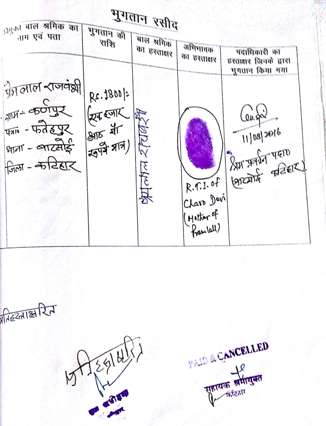 भुगतान रसीद
प्रमुक्त बाल श्रमिक का नाम एवं पता
भुगतान की राशि
बाल श्रमिक का हस्ताक्षर
अभिभावक का हस्ताक्षर
पदाधिकारी का हस्ताक्षर जिनके द्वारा भुगतान किया गया
प्रेमलाल राजवंशी
ग्राम- कर्णपुर
पंचा- फतेहपुर
थाना- बारसोई
जिला- कटिहार
Rs. 1800/-
एक हजार
आठ सौ
रुपये मात्र
प्रेमलाल राजवंशी
R.T.I. of
Charo Devi
(Mother of
Premlal)
11/08/2016
श्रम प्रवर्तन पदा०
(बारसोई कटिहार)
प्रतिहस्ताक्षरित
प्रतिहस्ताक्षरित
श्रम अधीक्षक
PAID & CANCELLED
सहायक श्रमायुक्त